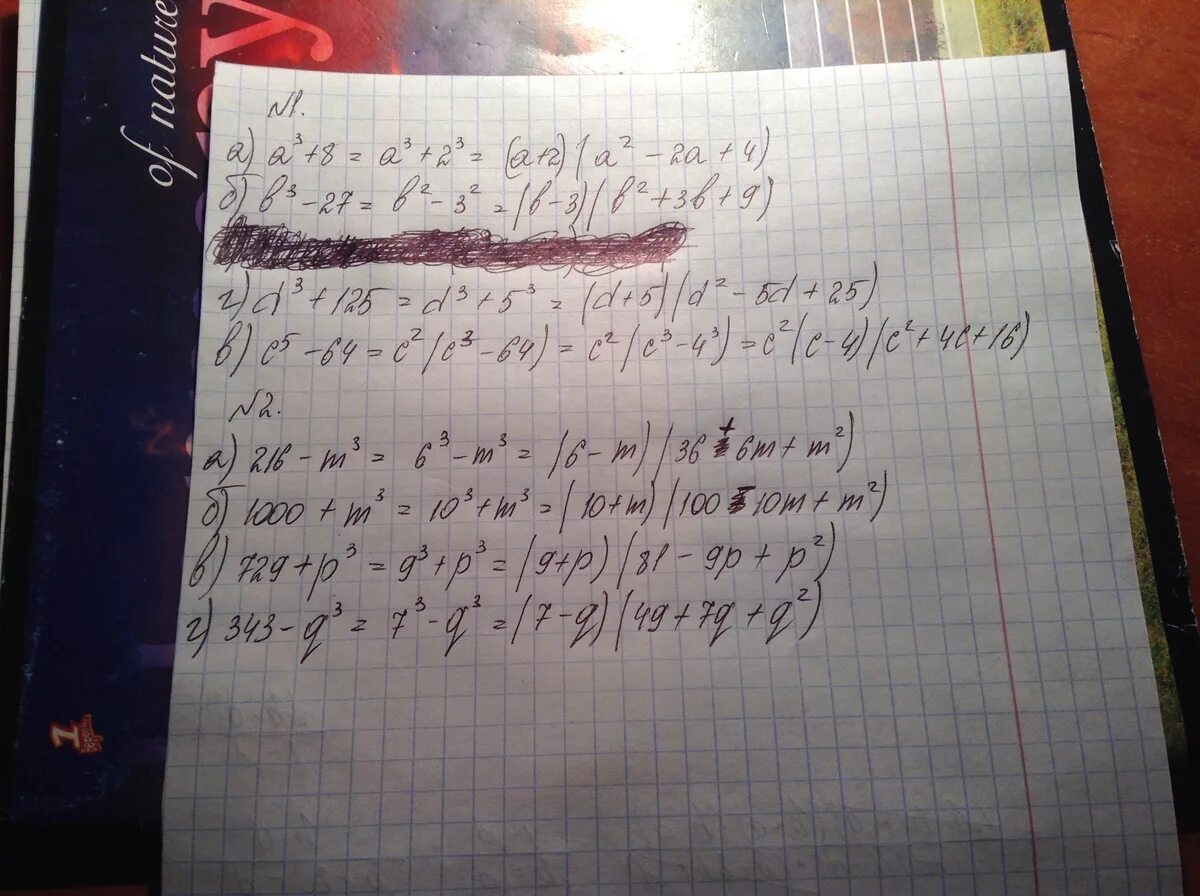 of nature
№1.
а) a³+8 = a³+2³ = (a+2)(a² - 2a + 4)
б) b³ - 27 = b² - 3² = (b-3)(b² + 3b + 9)
г) d³ + 125 = d³ + 5³ = (d+5)(d² - 5d + 25)
в) c⁵ - 64 = c²(c³ - 64) = c²(c³ - 4³) = c²(c-4)(c² + 4c + 16)
№2.
а) 216 - m³ = 6³ - m³ = (6 - m)(36 + 6m + m²)
б) 1000 + m³ = 10³ + m³ = (10+m)(100 - 10m + m²)
в) 729 + p³ = 9³ + p³ = (9+p)(81 - 9p + p²)
г) 343 - q³ = 7³ - q³ = (7 - q)(49 + 7q + q²)
1
вересня